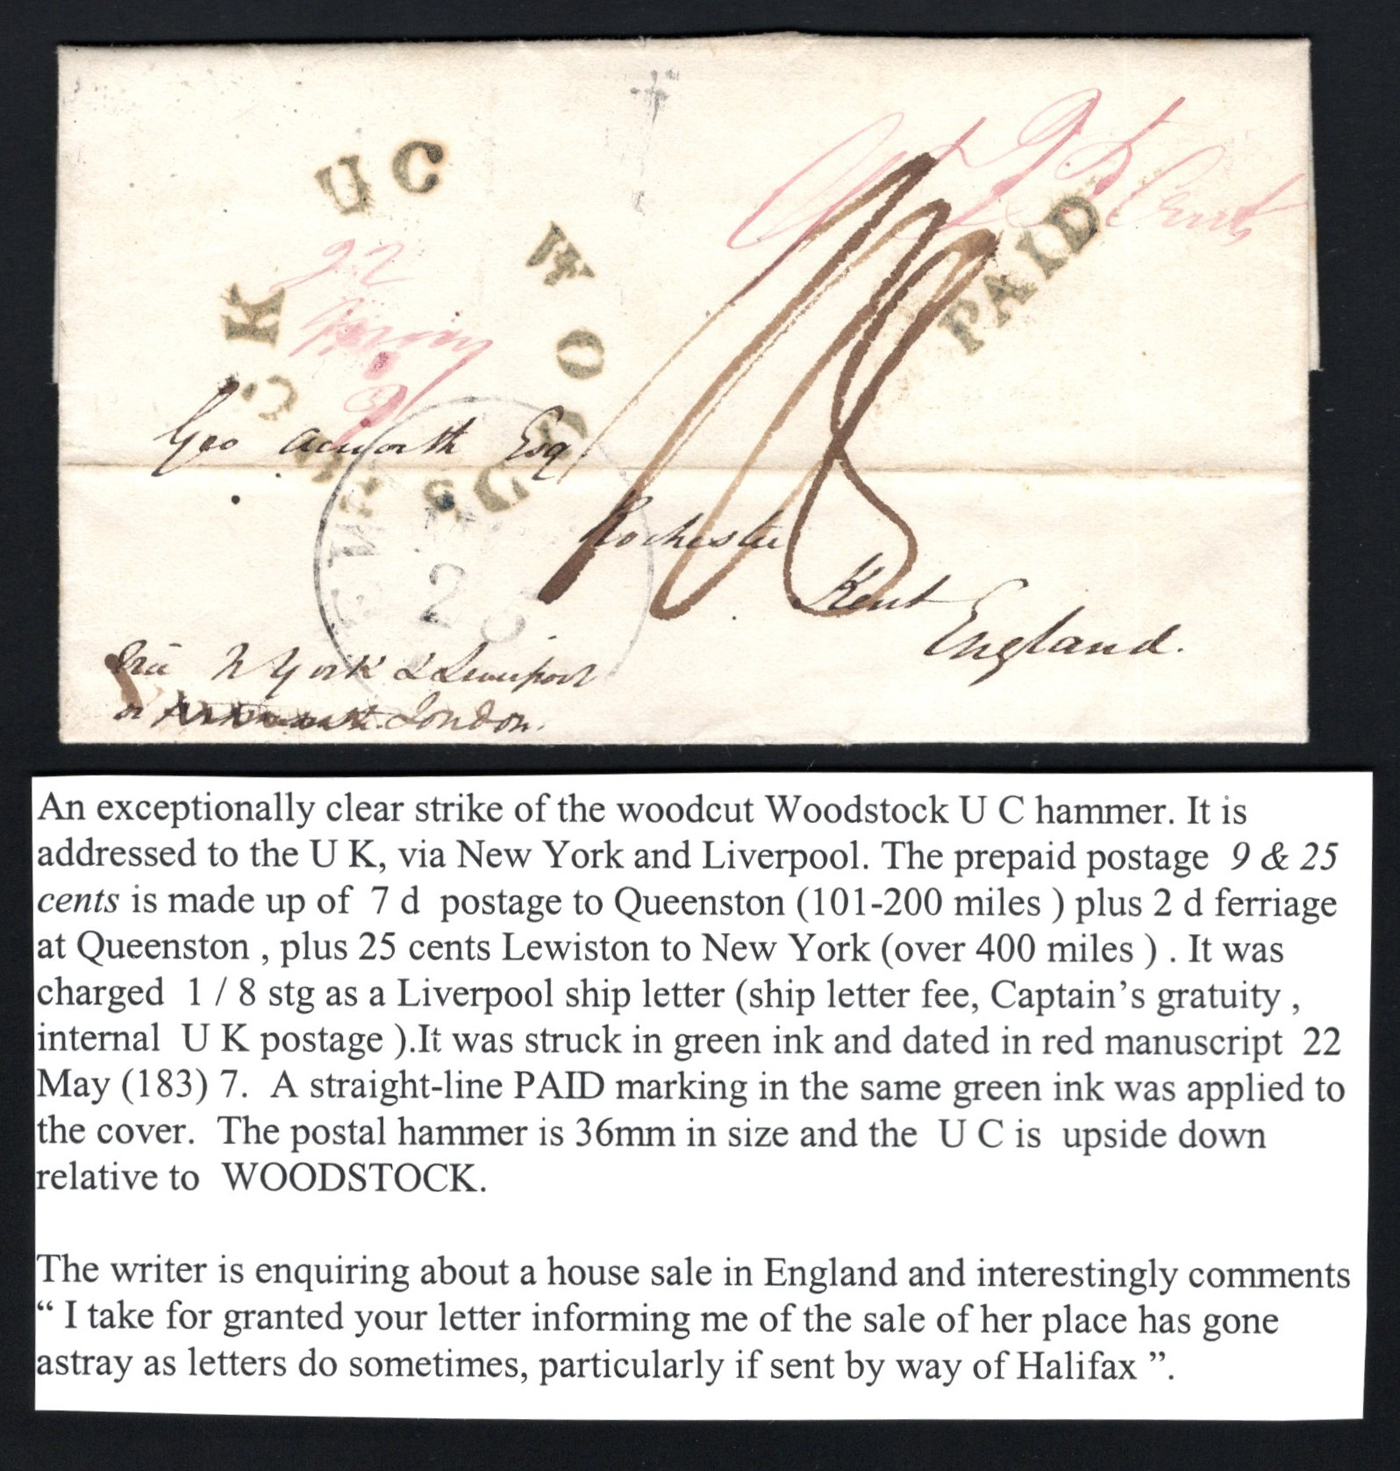 UC
WOODSTOCK
22
May
7
9 & 25 Cents
PAID
1/8
Geo Acworth Esq
Rochester
Kent
England.
NEW
25
Via N York & Liverpool
or London.
An exceptionally clear strike of the woodcut Woodstock U C hammer. It is
addressed to the U K, via New York and Liverpool. The prepaid postage 9 & 25
cents is made up of 7 d postage to Queenston (101-200 miles ) plus 2 d ferriage
at Queenston , plus 25 cents Lewiston to New York (over 400 miles ) . It was
charged 1 / 8 stg as a Liverpool ship letter (ship letter fee, Captain’s gratuity ,
internal U K postage ).It was struck in green ink and dated in red manuscript 22
May (183) 7. A straight-line PAID marking in the same green ink was applied to
the cover. The postal hammer is 36mm in size and the U C is upside down
relative to WOODSTOCK.
The writer is enquiring about a house sale in England and interestingly comments
“ I take for granted your letter informing me of the sale of her place has gone
astray as letters do sometimes, particularly if sent by way of Halifax ”.